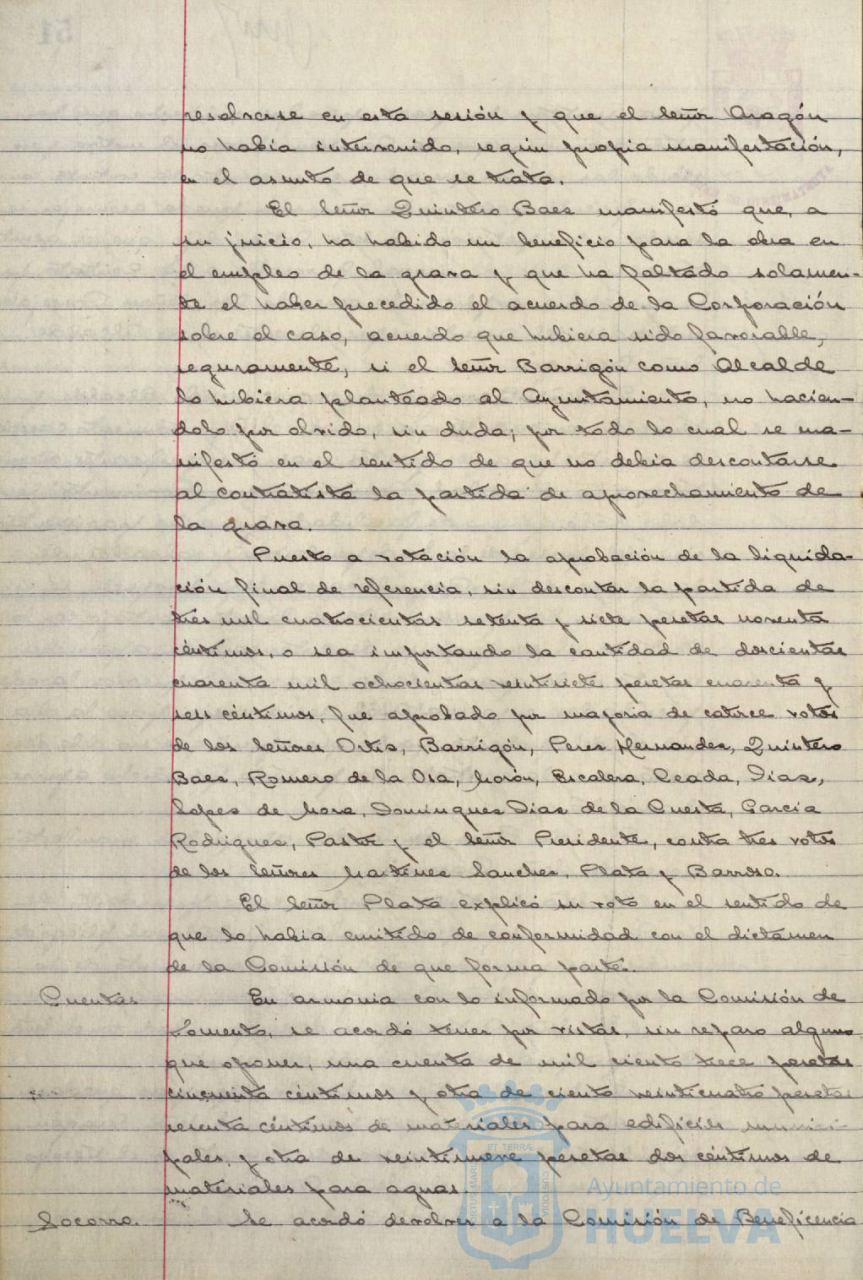 resolverse en esta sesión y que el Señor Aragón
no había intervenido, según propia manifestación,
en el asunto de que se trata.
El Señor Quintero Baez manifestó que, a
su juicio, ha habido un beneficio para la obra en
el empleo de la grava y que ha faltado solamen-
te el haber precedido el acuerdo de la Corporación
sobre el caso, acuerdo que hubiera sido favorable,
seguramente, si el Señor Barrigón como Alcalde
lo hubiera planteado al Ayuntamiento, no hacien-
dolo por olvido, sin duda; por todo lo cual se ma-
nifestó en el sentido de que no debía descontarse
al contratista la partida de aprovechamiento de
la grava.
Puesto a votación la aprobación de la liquida-
ción final de referencia, sin descontar la partida de
tres mil cuatrocientas setenta y siete pesetas noventa
céntimos, o sea importando la cantidad de doscientas
cuarenta mil ochocientas veintisiete pesetas cuarenta y
seis céntimos, fue aprobado por mayoría de catorce votos
de los Señores Ortiz, Barrigón, Perez Hernandez, Quintero
Baez, Romero de la Osa, Morón, Escalera, Ceada, Diaz,
Lopez de Mora, Dominguez Diaz de la Cuesta, Garcia
Rodriguez, Pastor y el Señor Presidente, contra tres votos
de los Señores Martinez Sanchez, Plata y Barroso.
El Señor Plata explicó su voto en el sentido de
que lo había emitido de conformidad con el dictamen
de la Comisión de que forma parte.
Cuentas En armonia con lo informado por la Comisión de
Fomento, se acordó tener por vistas, sin reparo alguno
que oponer, una cuenta de mil ciento trece pesetas
cincuenta céntimos y otra de ciento veinticuatro pesetas
sesenta céntimos de materiales para edificios munici-
pales, y otra de veintinueve pesetas dos céntimos de
materiales para aguas.
Socorro. Se acordó devolver a la Comisión de Beneficencia
Ayuntamiento de
HUELVA